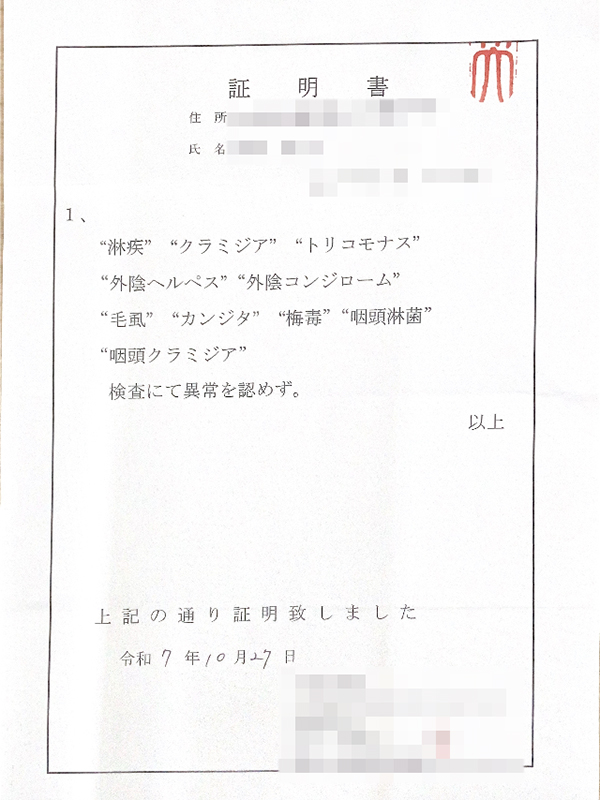 証明書
住所
氏名
1、
“淋疾” “クラミジア” “トリコモナス”
“外陰ヘルペス” “外陰コンジローム”
“毛虱” “カンジタ” “梅毒” “咽頭淋菌”
“咽頭クラミジア”
検査にて異常を認めず。
以上
上記の通り証明致しました
令和7年10月27日